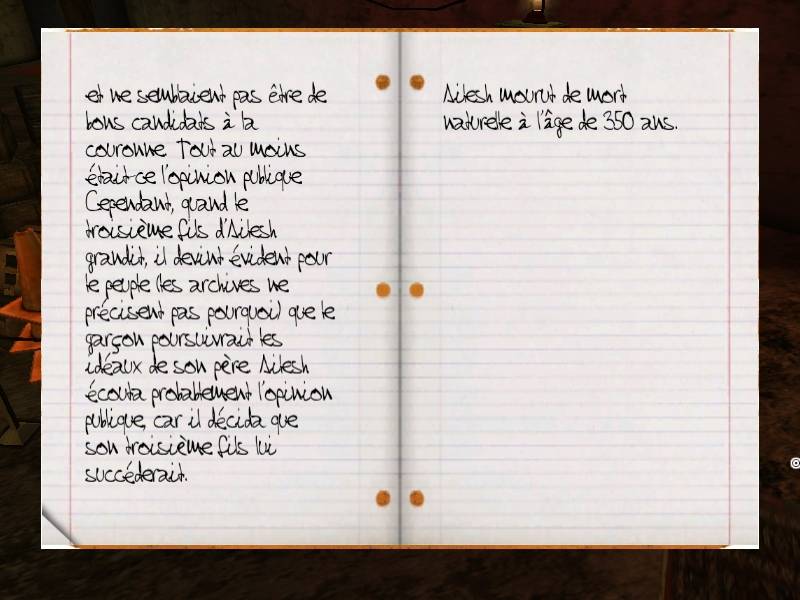 et ne semblaient pas être de
bons candidats à la
couronne. Tout au moins
était-ce l'opinion publique.
Cependant, quand le
troisième fils d'Ailesh
grandit, il devint évident pour
le peuple (les archives ne
précisent pas pourquoi) que le
garçon poursuivrait les
idéaux de son père. Ailesh
écouta probablement l'opinion
publique, car il décida que
son troisième fils lui
succéderait.
Ailesh mourut de mort
naturelle à l'âge de 350 ans.